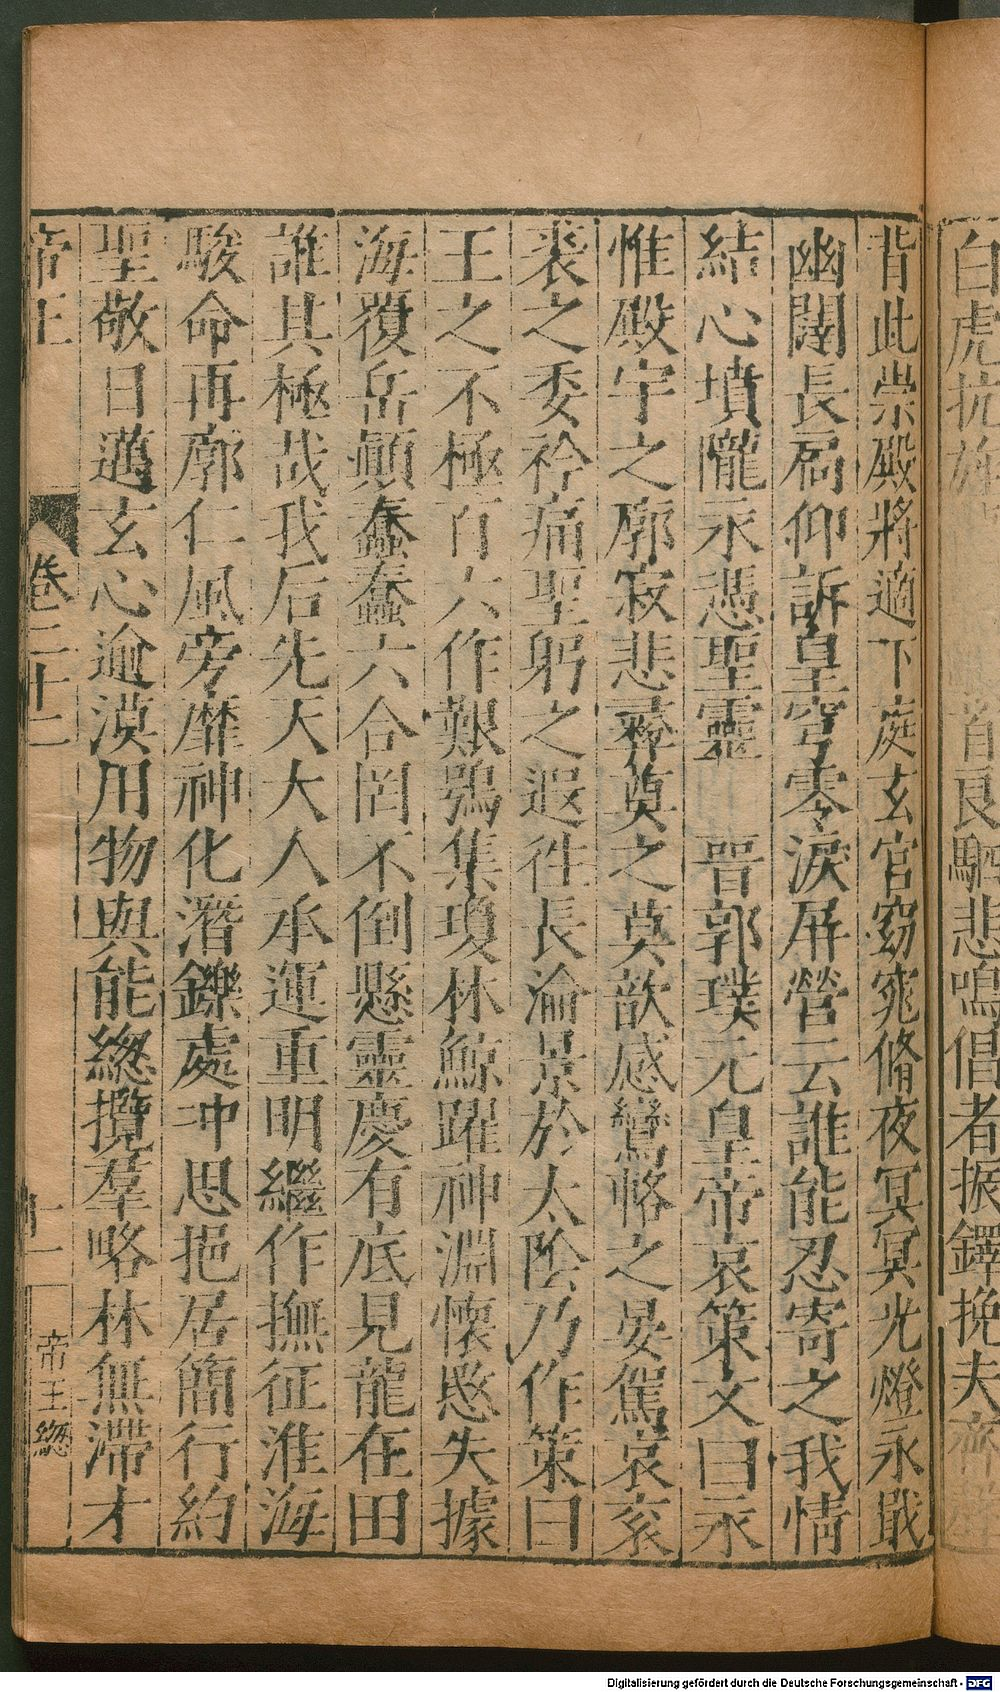 白虎抗
首良駟悲鳴倡者振鐸挽夫
背此崇殿將適下庭玄官窈窕脩夜冥冥光燈永戢
幽闥長扃仰訴皇穹零淚屏營云誰能忍寄之我情
結心墳隴永憑聖靈 晉郭璞元皇帝哀策文曰永
惟殿宇之廓寂悲彛奠之莫歆感鸞輅之晏駕哀衮
裘之委衿痛聖躬之遐徃長淪景於太陰乃作策曰
王之不極百六作艱鴞集瓊林鯨躍神淵懷愍失據
海覆岳顛蠢蠢六合罔不倒懸靈慶有底見龍在田
誰其極哉我后先天大人承運重明繼作撫征淮海
駿命再廓仁風旁靡神化潛鑠處冲思挹居簡行約
聖敬日躋玄心逾漠用物與能總攬羣略林無滯才
帝王
卷二十二
十一
帝王總
Digitalisierung gefördert durch die Deutsche Forschungsgemeinschaft - DFG